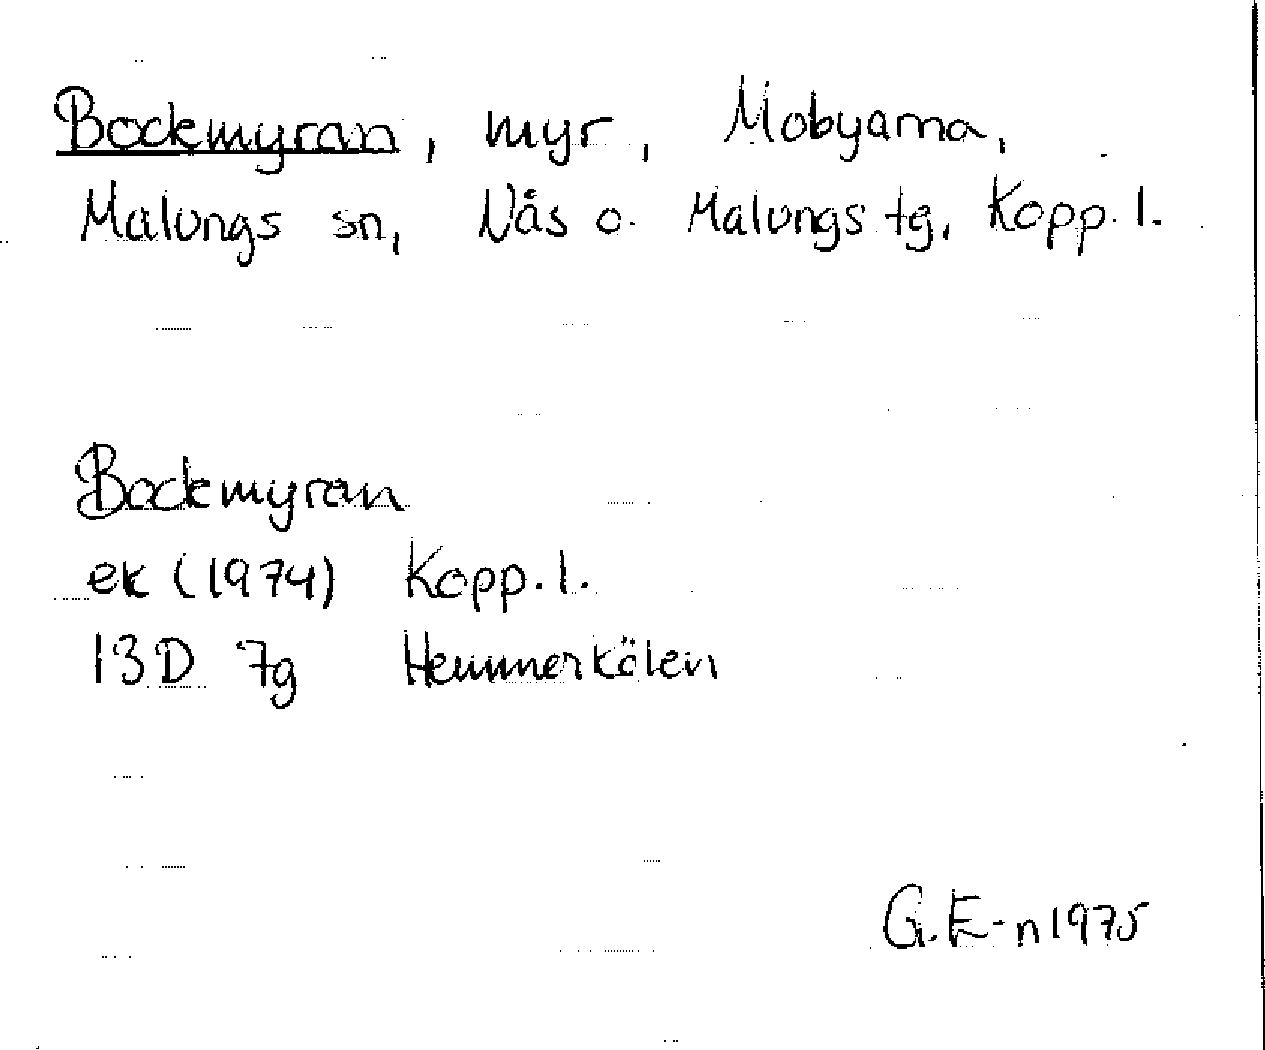 Bockmyran, myr, Mobyarna,
Malungs sn, Nås o. Malungs tg, Kopp. l.
Bockmyran
ek (1974) Kopp. l.
13D 7g Hemmerkölen
G. E-n 1975